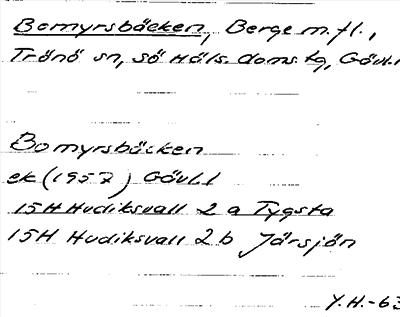 Bomyrsbäcken, Berge m.fl.,
Trönö sn, Sö Häls. doms.tg, Gävl.l
Bomyrsbäcken
ek (1957) Gävl.l
15H Hudiksvall 2 a Tygsta
15H Hudiksvall 2 b Järsjön
Y.H.-63